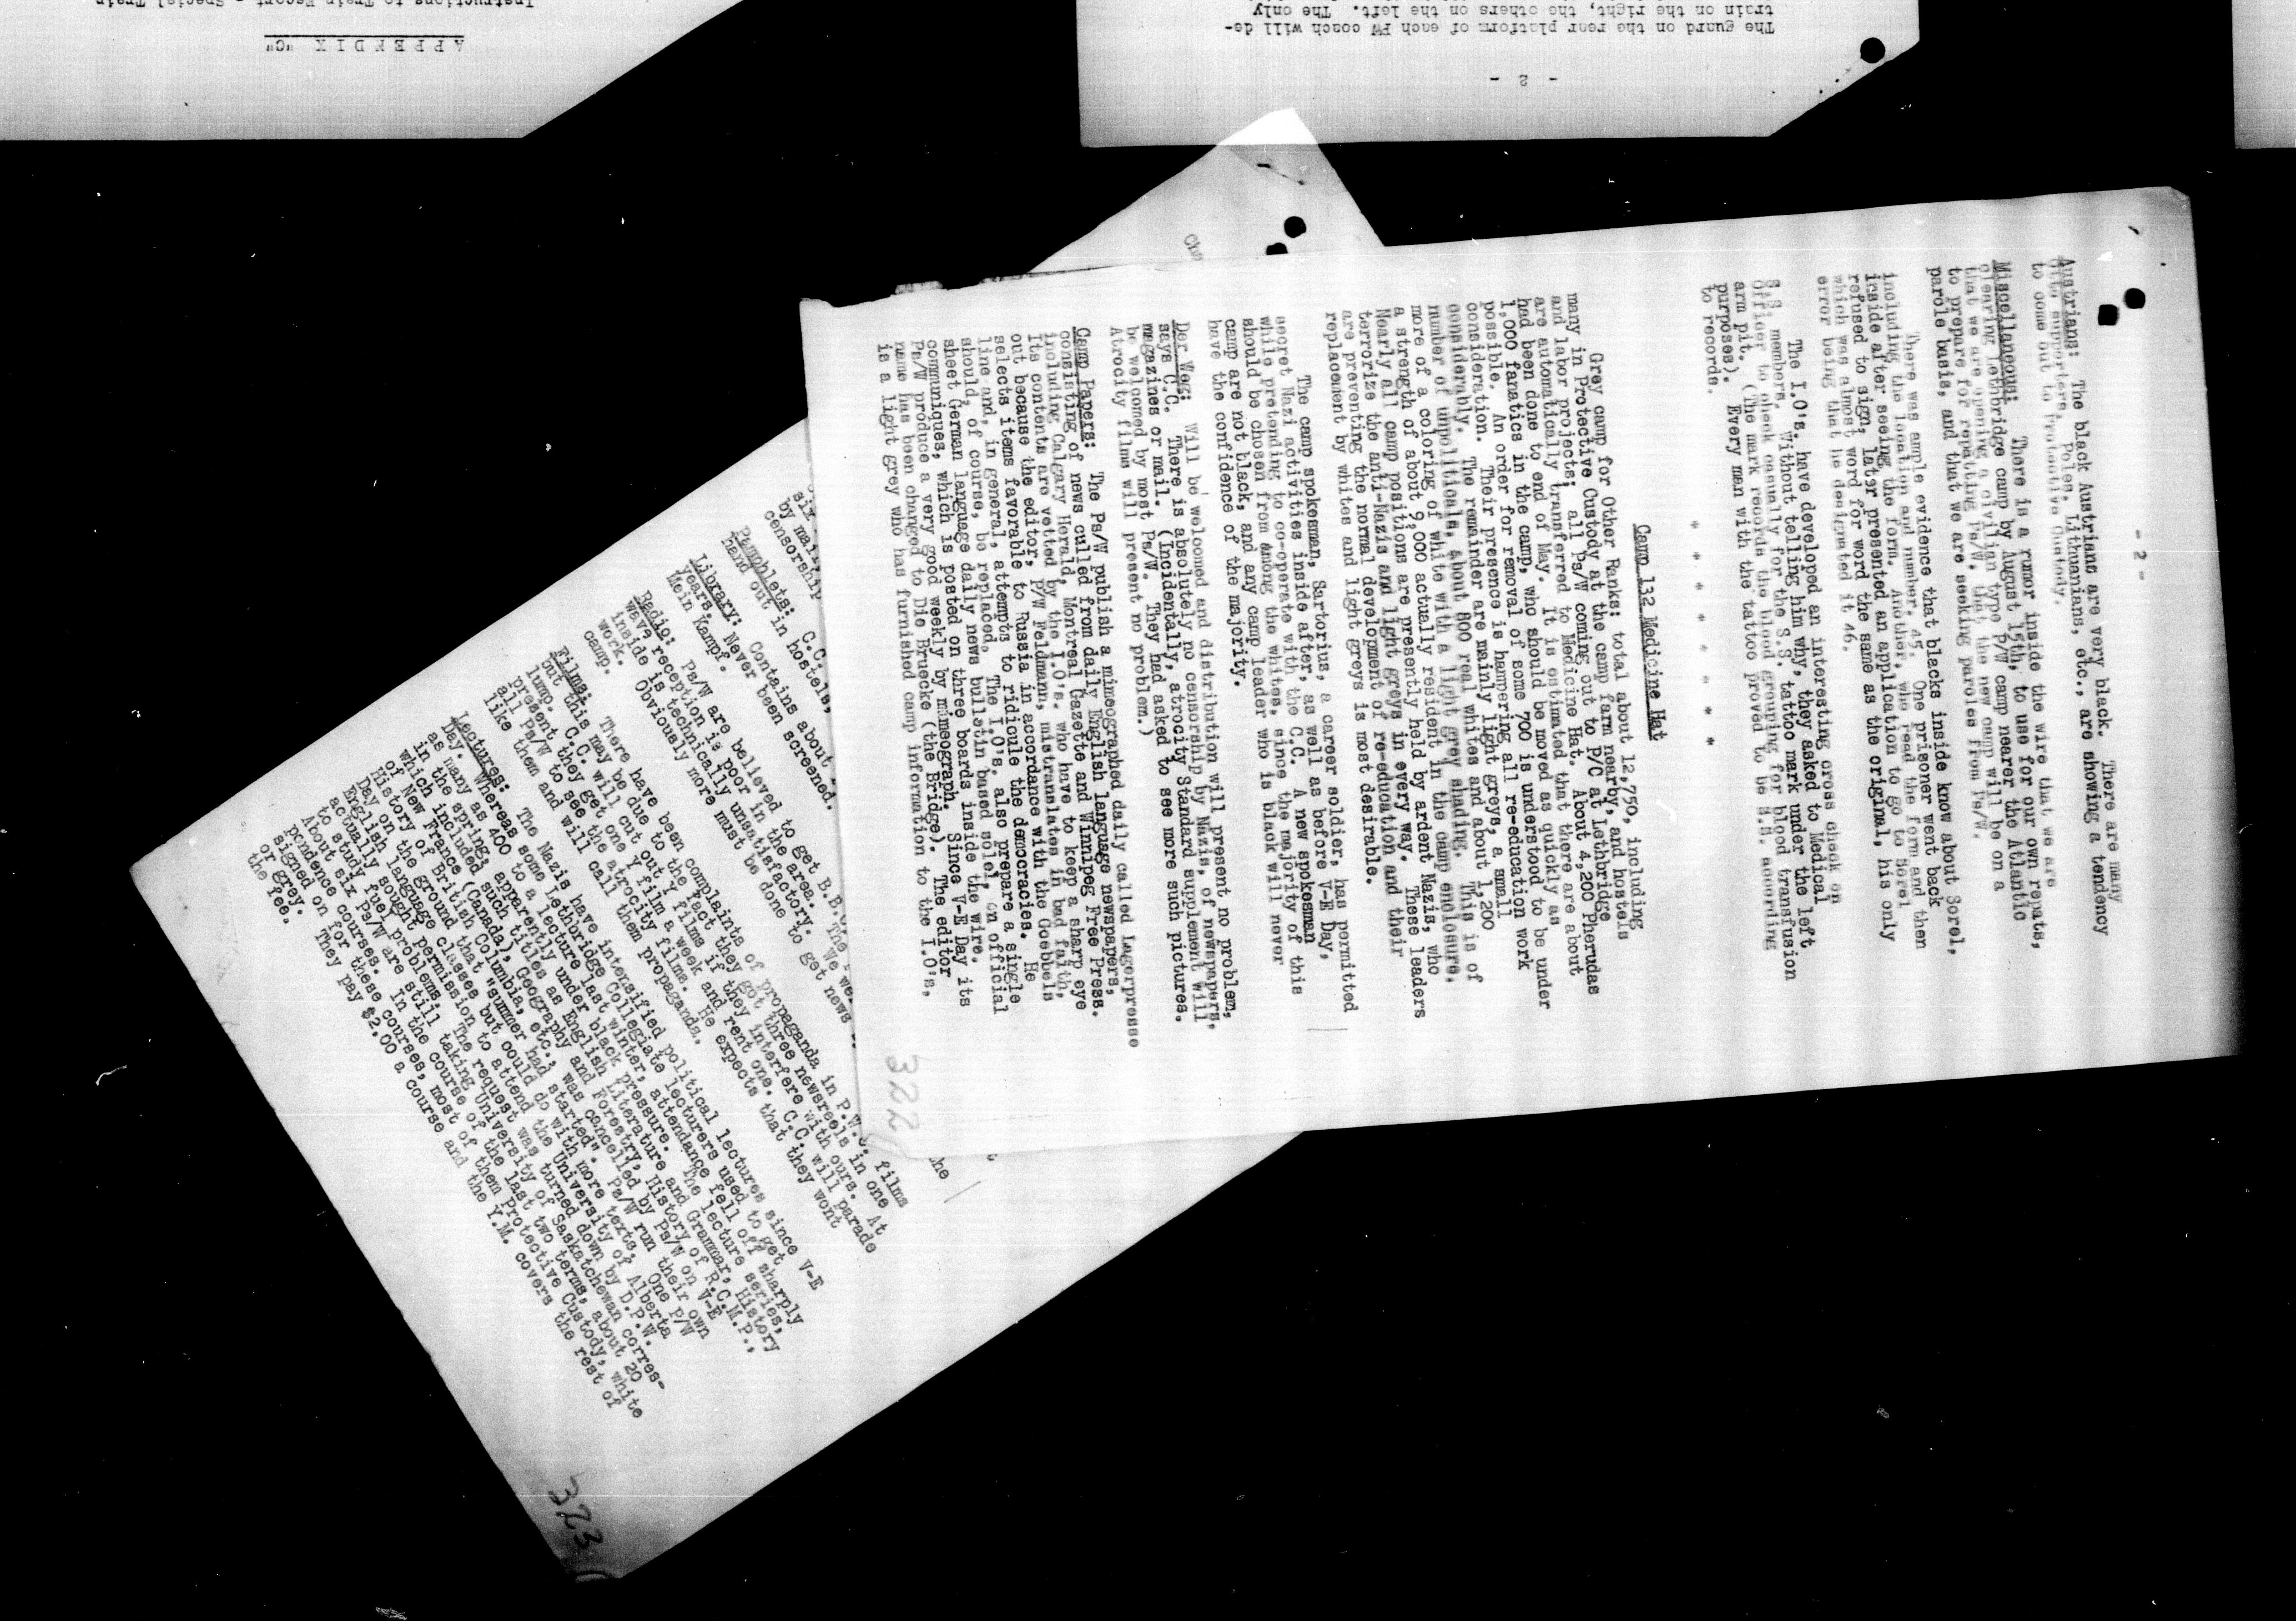 APPENDIX "C"
Instructions to Train Escort - Special Train
- 2 -
The guard on the rear platform of each PW coach will de-
train on the right, the others on the left. The only
- 2 -
Austrians: The black Austrians are very black. There are many
Otto supporters. Poles, Lithuanians, etc., are showing a tendency
to come out to Protective Custody.
Miscellaneous: There is a rumor inside the wire that we are
clearing Lethbridge camp by August 15th, to use for our own repats,
that we are opening a civilian type P/W camp nearer the Atlantic
to prepare for repatting Ps/W, that the new camp will be on a
parole basis, and that we are seeking paroles from Ps/W.
There was ample evidence that blacks inside know about Sorel,
including the location and number, 45. One prisoner went back
inside after seeing the form. Another, who read the form and then
refused to sign, later presented an application to go to Sorel
which was almost word for word the same as the original, his only
error being that he designated it 46.
The I.O's. have developed an interesting cross check on
S.S. members. Without telling him why, they asked to Medical
Officer to check casually for the S.S. tattoo mark under the left
arm pit. (The mark records the blood grouping for blood transfusion
purposes). Every man with the tattoo proved to be S.S. according
to records.
* * * * * * * *
Camp 132 Medicine Hat
Grey camp for Other Ranks: total about 12,750, including
many in Protective Custody at the camp farm nearby, and hostels
and labor projects; all Ps/W coming out to P/C at Lethbridge
are automatically transferred to Medicine Hat. About 4,200 Pherudas
had been done to end of May. It is estimated that there are about
1,000 fanatics in the camp, who should be moved as quickly as
possible. An order for removal of some 700 is understood to be under
consideration. Their presence is hampering all re-education work
considerably. The remainder are mainly light greys, a small
number of unpoliticals, about 800 real whites and about 1,200
more of a coloring of white with a light grey shading. This is of
a strength of about 9,000 actually resident in the camp enclosure.
Nearly all camp positions are presently held by ardent Nazis, who
terrorize the anti-Nazis and light greys in every way. These leaders
are preventing the normal development of re-education and their
replacement by whites and light greys is most desirable.
The camp spokesman, Sartorius, a career soldier, has permitted
secret Nazi activities inside after, as well as before V-E Day,
while pretending to co-operate with the C.C. A new spokesman
should be chosen from among the whites, since the majority of this
camp are not black, and any camp leader who is black will never
have the confidence of the majority.
Der Weg: Will be welcomed and distribution will present no problem,
says C.C. There is absolutely no censorship by Nazis, of newspapers,
magazines or mail. (Incidentally, atrocity Standard supplement will
be welcomed by most Ps/W. They had asked to see more such pictures.
Atrocity films will present no problem.)
Camp Papers: The Ps/W publish a mimeographed daily called Lagerpresse
consisting of news culled from daily English language newspapers,
including Calgary Herald, Montreal Gazette and Winnipeg Free Press.
Its contents are vetted by the I.O's. who have to keep a sharp eye
out because the editor, P/W Feldmann, mistranslates in bad faith,
selects items favorable to Russia in accordance with the Goebbels
line and, in general, attempts to ridicule the democracies. He
should, of course, be replaced. The I.O's. also prepare a single
sheet German language daily news bulletin based solel, on official
communiques, which is posted on three boards inside the wire.
Ps/W produce a very good weekly by mimeograph. Since V-E Day its
name has been changed to Die Bruecke (the Bridge). The editor
is a light grey who has furnished camp information to the I.O's.
322
six
by mail
censorship
Pamphlets: C.C.
hand out in hostels,
Library: Contains about
years. Never been screened.
Mein Kampf.
Radio: Ps/W are believed to get B.B.C.
wave reception is poor in the area. The
inside is technically unsatisfactory. We
work. Obviously more must be done to get news
camp.
Films: There have been complaints of propaganda in P.W. films
but this may be due to the fact they got three newsreels in one
lump. C.C. will cut out Y films if they interfere with ours. At
present they get one Y film a week and rent one. C.C. will parade
all Ps/W to see the atrocity films. He expects that they wont
like them and will call them propaganda.
Lectures: The Nazis have intensified political lectures since V-E
Day. Whereas some Lethbridge Collegiate lecturers used to get
as many as 400 to a lecture last winter, attendance fell off sharply
in the spring, apparently under black pressure. The lecture series,
which included such titles as English Literature and Grammar, History
of New France (Canada), Geography and Forestry, History of R.C.M.P.,
History of British Columbia, etc., was cancelled by Ps/W on V-E
Day on the ground that "summer had started". Ps/W run their own
English language classes but could do with more texts. One P/W
actually sought permission to attend the University of Alberta
to study fuel problems. The request was turned down by D.P.W.
About six Ps/W are still taking University of Saskatchewan corres-
pondence courses. In the course of the last two terms, about 20
signed on for these courses, most of them Protective Custody, white
or grey. They pay $2.00 a course and the Y.M. covers the rest of
the fee.
323